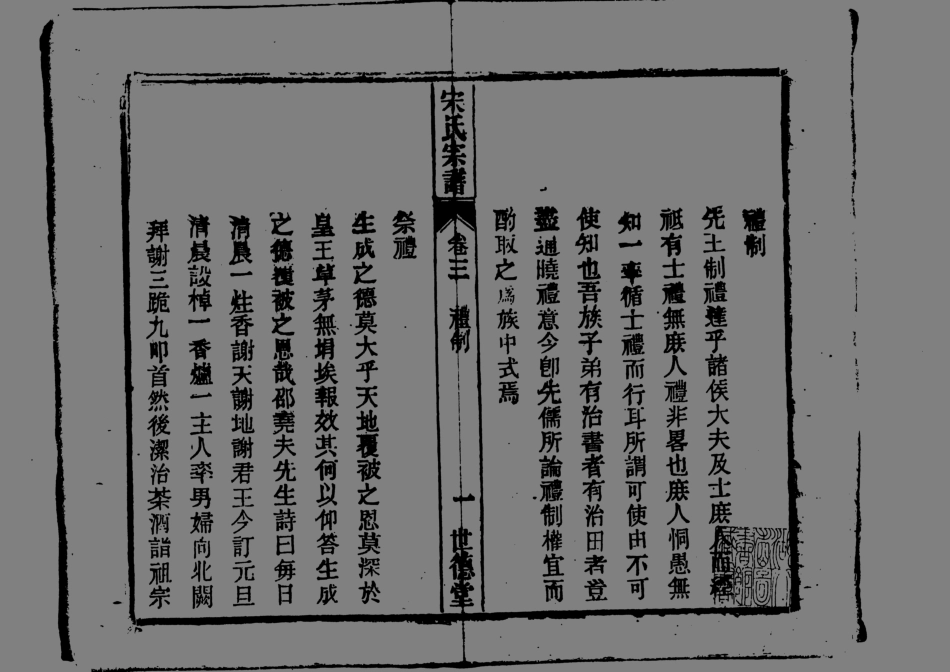 禮制
先王制禮達乎諸侯大夫及士庶人而禮
祗有士禮無庶人禮非畧也庶人恫愚無
知一率循士禮而行耳所謂可使由不可
使知也吾族子弟有治書者有治田者豈
盡通曉禮意今卽先儒所論禮制權宜而
酌取之爲族中式焉
宋氏宗譜
卷三
禮制
一
世德堂
祭禮
生成之德莫大乎天地覆被之恩莫深於
皇王草茅無涓埃報效其何以仰答生成
之德覆被之恩哉邵堯夫先生詩曰每日
清晨一炷香謝天謝地謝君王今訂元旦
清晨設棹一香爐一主人率男婦向北闕
拜謝三跪九叩首然後潔治茶酒詣祖宗